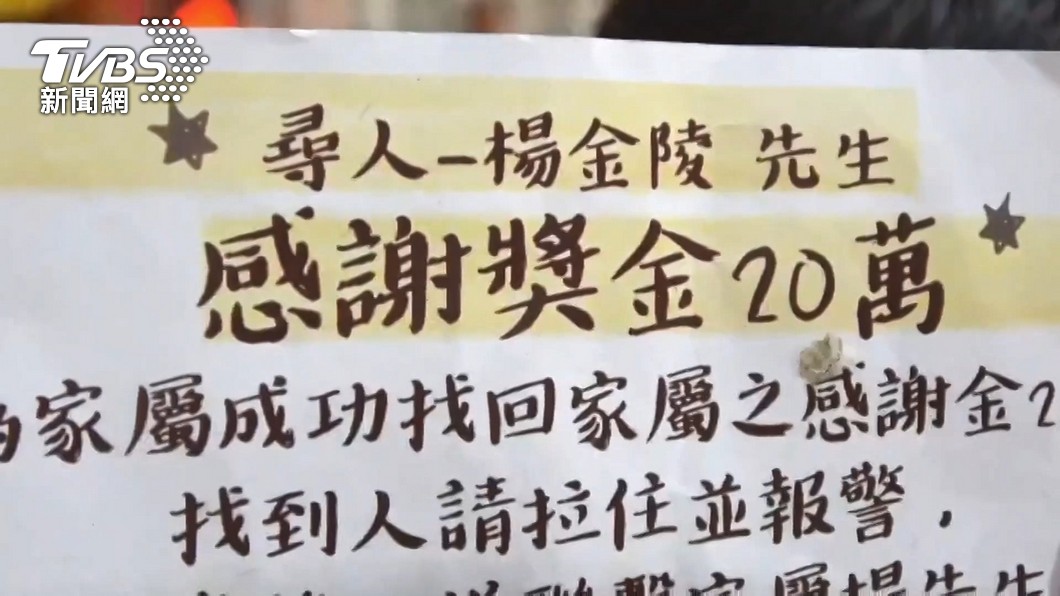 TVBS
新聞網
尋人-楊金陵 先生
感謝獎金20萬
家屬成功找回家屬之感謝金2
找到人請拉住並報警，